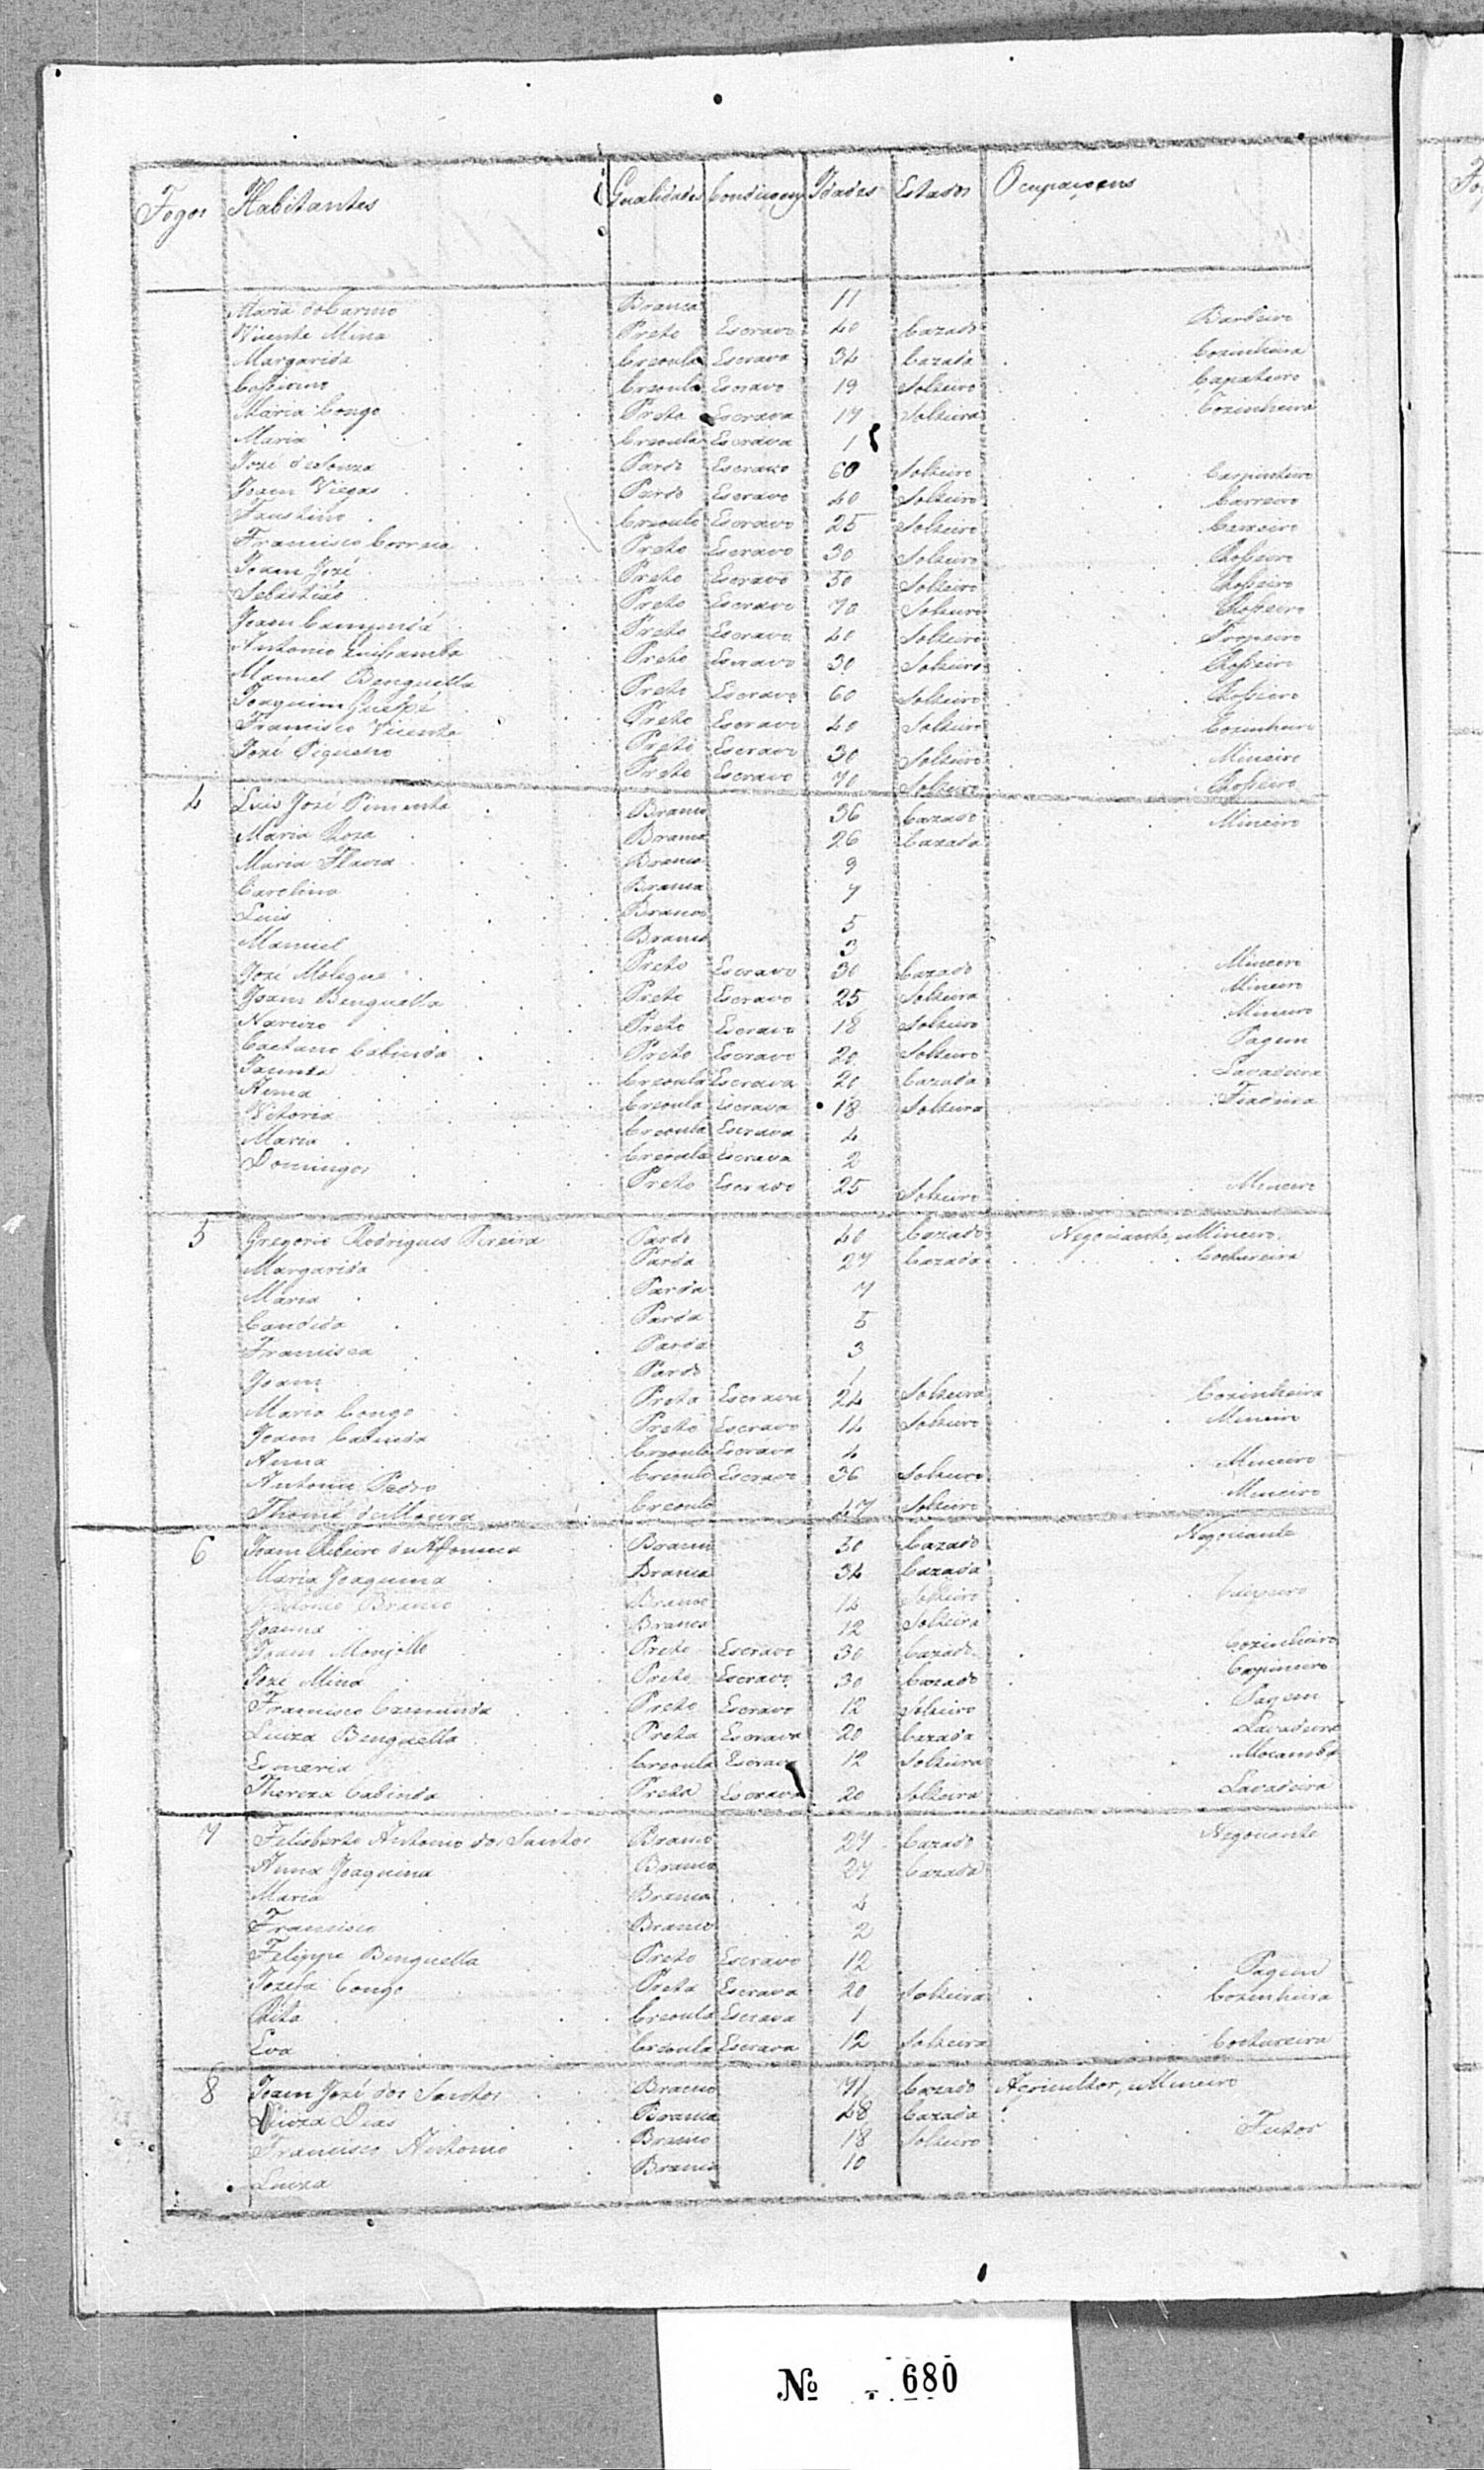 Fogos Habitantes Qualidades Condiçoens Idades Estados Ocupaçoens
Maria do Carmo Branca 11
Vicente Mina Preto Escravo 40 Cazado Barbeiro
Margarida Creoula Escrava 34 Cazada Cozinheira
Creoulo Escravo 19 Solteiro Çapateiro
Maria Congo Preta Escrava 17 Solteira Cozinheira
Maria Creoula Escrava 1
Jozé de Souza Pardo Escravo 60 Solteiro Carpinteiro
Joam Viegas Pardo Escravo 40 Solteiro Carreiro
Faustino Creoulo Escravo 25 Solteiro
Francisco Correia Preto Escravo 30 Solteiro Rosseiro
Joam Jozé Preto Escravo 50 Solteiro Rosseiro
Sebastião Preto Escravo 70 Solteiro Rosseiro
Joam Camundá Preto Escravo 40 Solteiro Tropeiro
Antonio Quissamba Preto Escravo 30 Solteiro Rosseiro
Manuel Benguella Preto Escravo 60 Solteiro Rosseiro
Joaquim Preto Escravo 40 Solteiro Cozinheiro
Francisco Vicente Preto Escravo 30 Solteiro Mineiro
Jozé Piqueno Preto Escravo 70 Solteiro Rosseiro
4 Luis José Pimenta Branco 36 Cazado Mineiro
Maria Roza Branca 26 Cazada
Maria Flavia Branca 9
Carolina Branca 7
Luis Branco 5
Manuel Branco 3
Jozé Moleque Preto Escravo 30 Cazado Mineiro
Joam Benguella Preto Escravo 25 Solteiro Mineiro
Narcizo Preto Escravo 18 Solteiro Mineiro
Caetano Cabinda Preto Escravo 20 Solteiro Pagem
Joanna Creoula Escrava 20 Cazada Lavadeira
Anna Creoula Escrava 18 Solteira Fiadeira
Vitoria Creoula Escrava 4
Maria Creoula Escrava 2
Domingos Preto Escravo 25 Solteiro Mineiro
5 Gregorio Rodrigues Pereira Pardo 40 Cazado Negociante, e Mineiro
Margarida Parda 27 Cazada Costureira
Maria Parda 7
Candida Parda 5
Francisca Parda 3
Joam Pardo 1
Maria Congo Preta Escrava 24 Solteira Cozinheira
Joam Cabinda Preto Escravo 14 Solteiro Mineiro
Anna Creoula Escrava 4
Antonio Pedro Creoulo Escravo 36 Solteiro Mineiro
Thomé de Moura Creoulo 47 Solteiro Mineiro
6 Joam Ribeiro de Affonseca Branco 50 Cazado Negociante
Maria Joaquina Branca 34 Cazada
Antonio Branco Branco 14 Solteiro Caixeiro
Joanna Branca 12 Solteira
Joam Monjollo Preto Escravo 30 Cazado Cozinheiro
Jozé Mina Preto Escravo 30 Cazado Capineiro
Francisco Camunda Preto Escravo 12 Solteiro Pagem
Luiza Benguella Preta Escrava 20 Cazada Lavadeira
Esmeria Creoula Escrava 12 Solteira Mocamba
Thereza Cabinda Preta Escrava 20 Solteira Lavadeira
7 Felisberto Antonio dos Santos Branco 27 Cazado Negociante
Anna Joaquina Branca 27 Cazada
Maria Branca 4
Francisco Branco 2
Felippe Benguella Preto Escravo 12 Pagem
Jozefa Congo Preta Escrava 20 Solteira Cozinheira
Rita Creoula Escrava 1
Eva Creoula Escrava 12 Solteira Costureira
8 Joam Jozé dos Santos Branco 71 Cazado Agricultor, e Mineiro
Luiza Dias Branca 48 Cazada
Francisco Antonio Branco 18 Solteiro Feitor
Luiza Branca 10
No 680